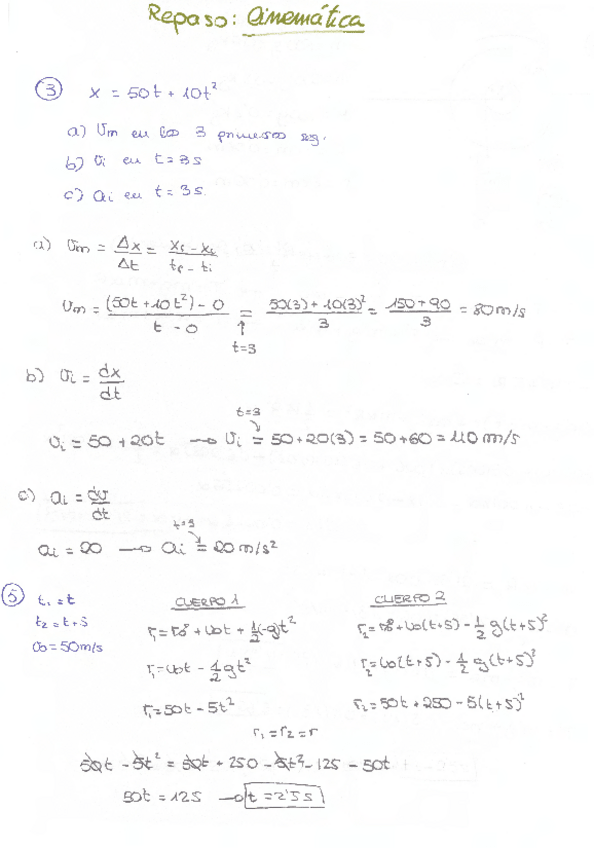 Repaso: Cinemática
③ x = 50t + 10t²
a) Vm en los 3 primeros seg.
b) Vi en t = 3s
c) ai en t = 3s.
a) Vm = Δx/Δt = (xf - xi)/(tf - ti)
Vm = ((50t + 10t²) - 0)/(t - 0) = (50(3) + 10(3)²)/3 = (150 + 90)/3 = 80 m/s
t=3
b) Vi = dx/dt
t=3
Vi = 50 + 20t → Vi = 50 + 20(3) = 50 + 60 = 110 m/s
c) ai = dv/dt
t=3
ai = 20 → ai = 20 m/s²
⑤ t₁ = t CUERPO 1 CUERPO 2
t₂ = t+5 r₁ = r₀ + v₀t + ½(-g)t² r₂ = r₀ + v₀(t+5) - ½ g(t+5)²
v₀ = 50 m/s r₁ = v₀t - ½ gt² r₂ = v₀(t+5) - ½ g(t+5)²
r₁ = 50t - 5t² r₂ = 50t + 250 - 5(t+5)²
r₁ = r₂ = r
50t - 5t² = 50t + 250 - 5t² - 125 - 50t
50t = 125 → t = 2'5 s